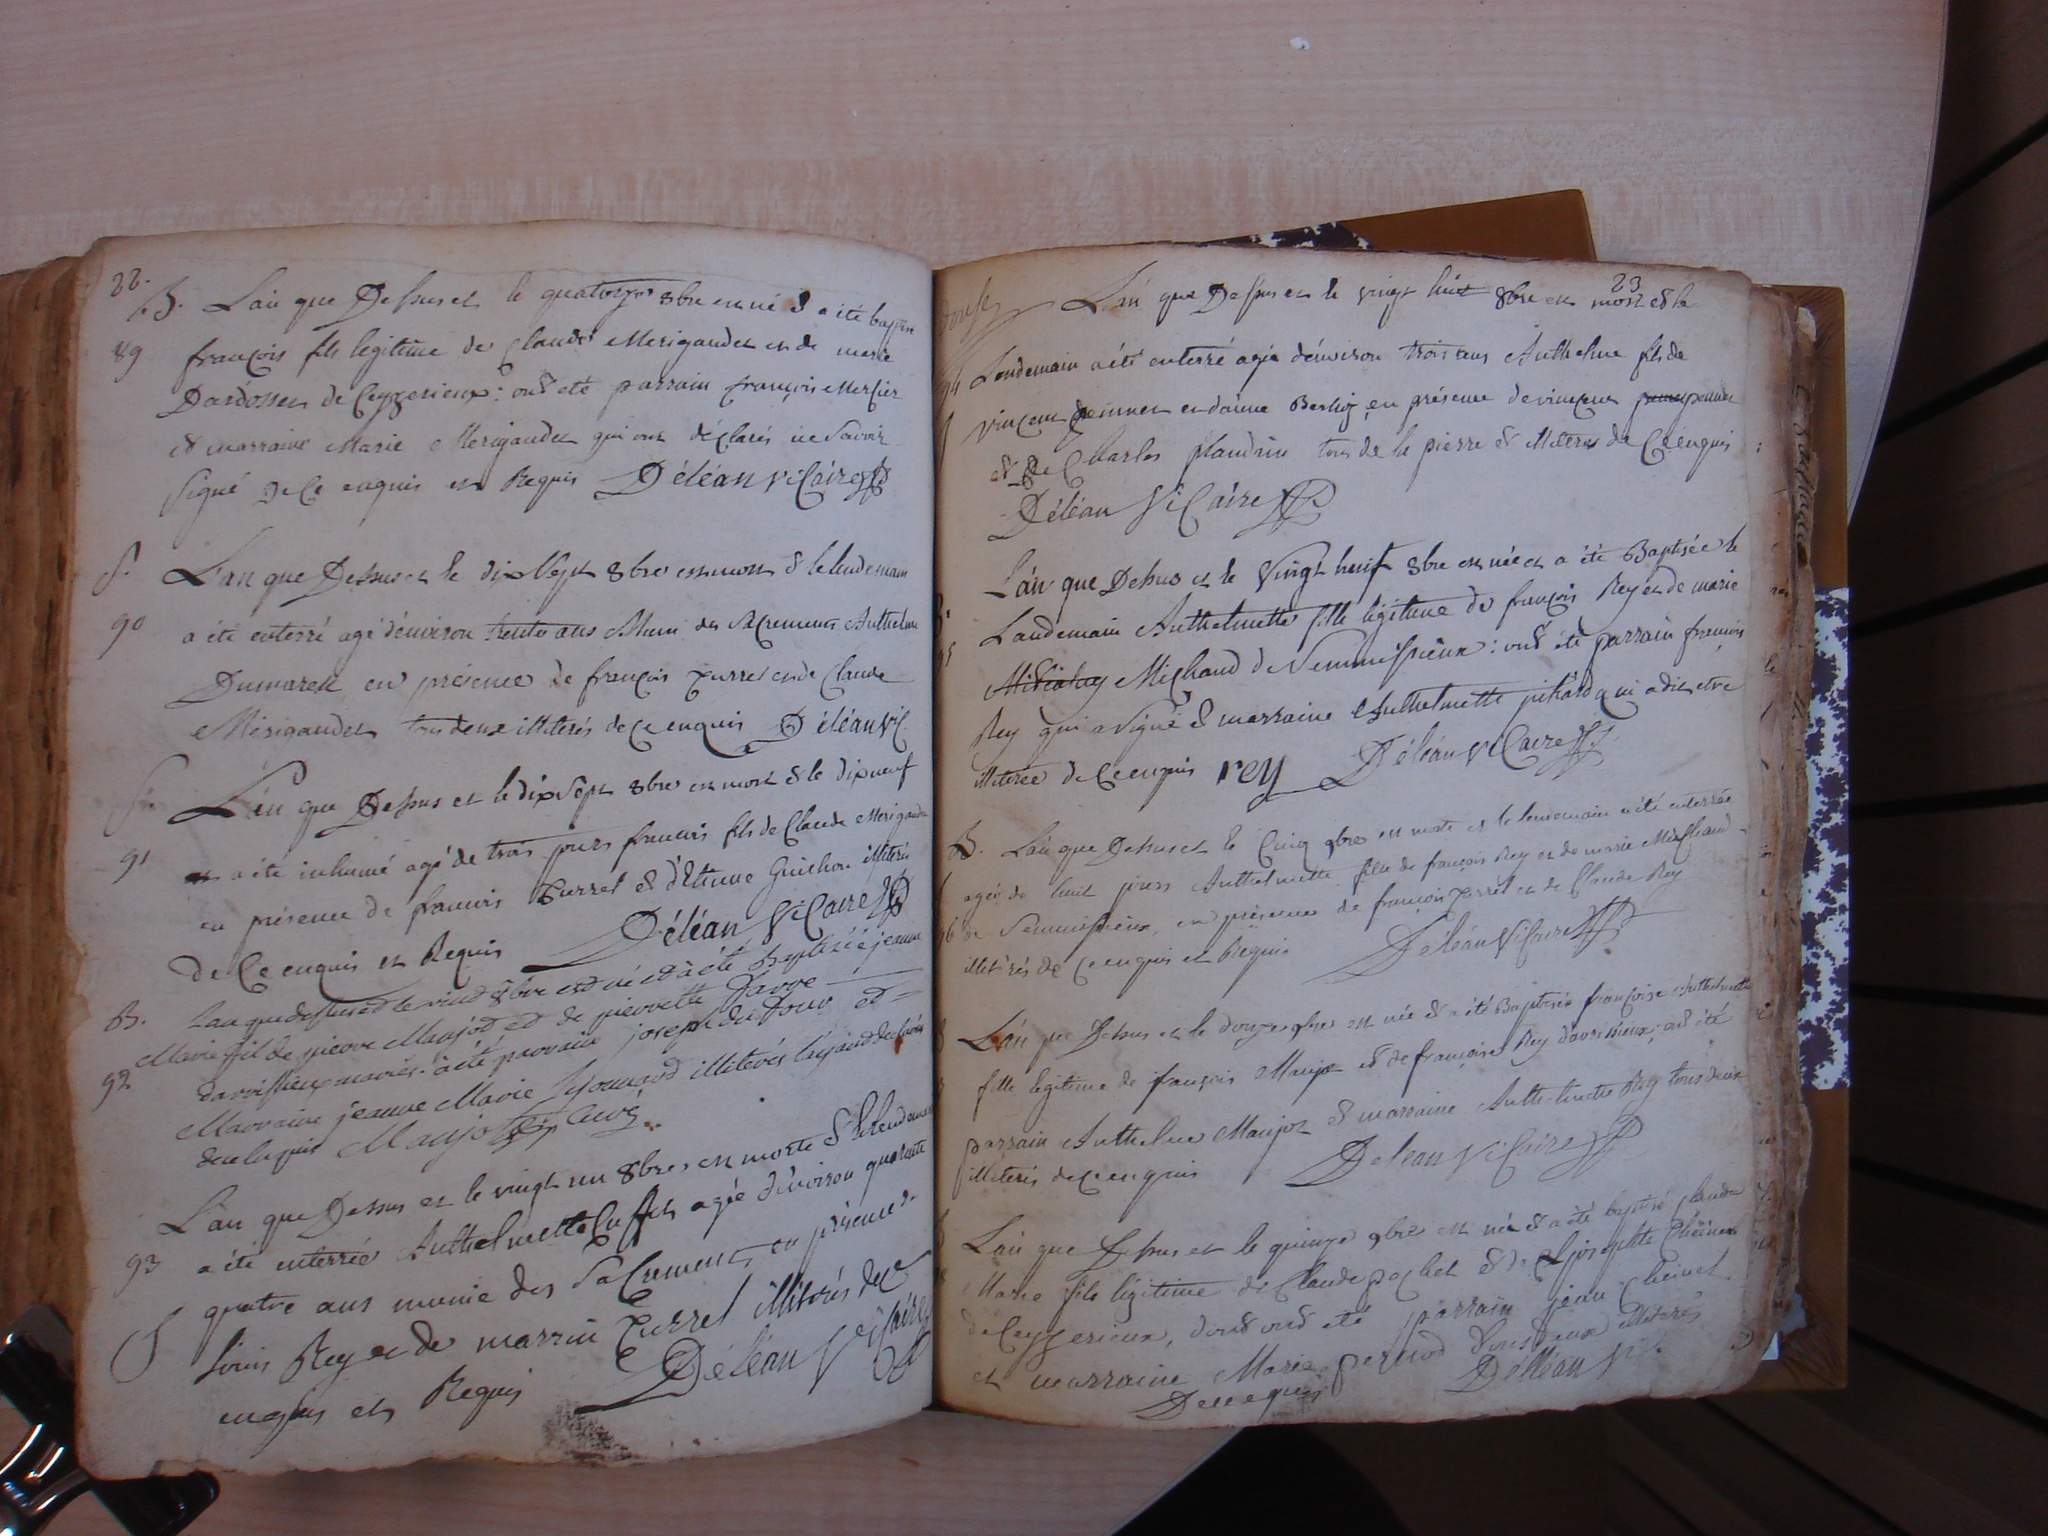 22.
B. L'an que Dessus et le quatorze 8bre est né & a été baptisé
89 françois fils legitime de Claude Merigaudet et de marie
Dardossen de Ceyzerieux : ont été parrain françois Mercier
& marraine Marie Merigaudet qui ont déclarés ne Savoir
Signé de Ce enquis et Requis Déléan ViCaire
S. L'an que Dessus et le dix Sept 8bre est mort & le lendemain
90 a été enterré agé d'environ trente ans Muni des SaCrements Anthelme
Dumarest en présence de françois purret et de Claude
Mérigaudet tous deux illiterés de Ce enquis Déléan ViC.
S. L'an que Dessus et le dix Sept 8bre est mort & le dix neuf
91 a été inhumé agé de trois jours francois fils de Claude Merigaudet
en présence de francois purret & d'Etienne Guichon illiterés
de Ce enquis et Requis Déléan ViCaire
B. L'an que dessus et le vint 8bre est né et a été baptisée jeanne
Marie fil de pierre Maujot et de pierrette favre
92 davrissieux mariés. a été parrain joseph du four et
Marraine jeanne Marie illiterés
de ce enquis Maujot Curé.
L'an que Dessus et le vingt un 8bre est morte & le lendemain
93 a été enterrée Anthelmette agée d'environ quarante
quatre ans munie des SaCrements en présence de
S Louis Rey et de marrin purret illiterés de Ce
enquis et Requis Déléan ViCaire
23
L'an que Dessus et le vingt huit 8bre est mort & le
94 Lendemain a été enterré agée d'environ trois ans Anthelme fils de
vincent pennet et d'anne Berlioz en présence de vincent pennet
& de Charles plandrin tous de la pierre & illiterés de Ce enquis
Déléan ViCaire
L'an que Dessus et le Vingt huit 8bre est née et a été Baptisée le
95 Landemain Anthelmette fille légitime de françois Rey et de marie
Michaud de Vemmissieux : ont été parrain françois
Rey qui a Signé & marraine Anthelmette pichard qui a dit etre
illiterée de Ce enquis rey Déléan ViCaire
S. L'an que Dessus et le Cinq 9bre est morte et le lendemain a été enterrée
agée de huit jours Anthelmette fille de françois Rey et de marie Michaud
96 de Vemmissieux, en présence de françois purret et de Claude Rey
illiterés de Ce enquis et Requis Déléan ViCaire
L'an que Dessus et le douze 9bre est née & a été Baptisée françoise Anthelmette
fille legitime de françois Maujot & de françoise Rey d'avrissieux; ont été
parrain Anthelme Maujot & marraine Anthelmette Rey tous deux
illiterés de Ce enquis Deléan ViCaire
L'an que Dessus et le quinze 9bre est né & a été baptisé Claude
Marie fils légitime de Claude pochet & de josephte Cheinet
de Ceyzerieux, dont ont été parrain jean Cheinet
et marraine Marie pernod tous deux illiterés
De ce enquis Déléan Vi.